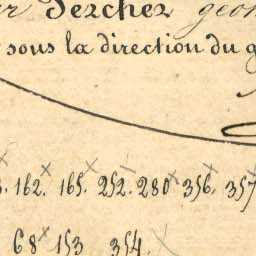 Percher géom
sous la direction du g
162. 165. 252. 280 356. 357
68 153 354.